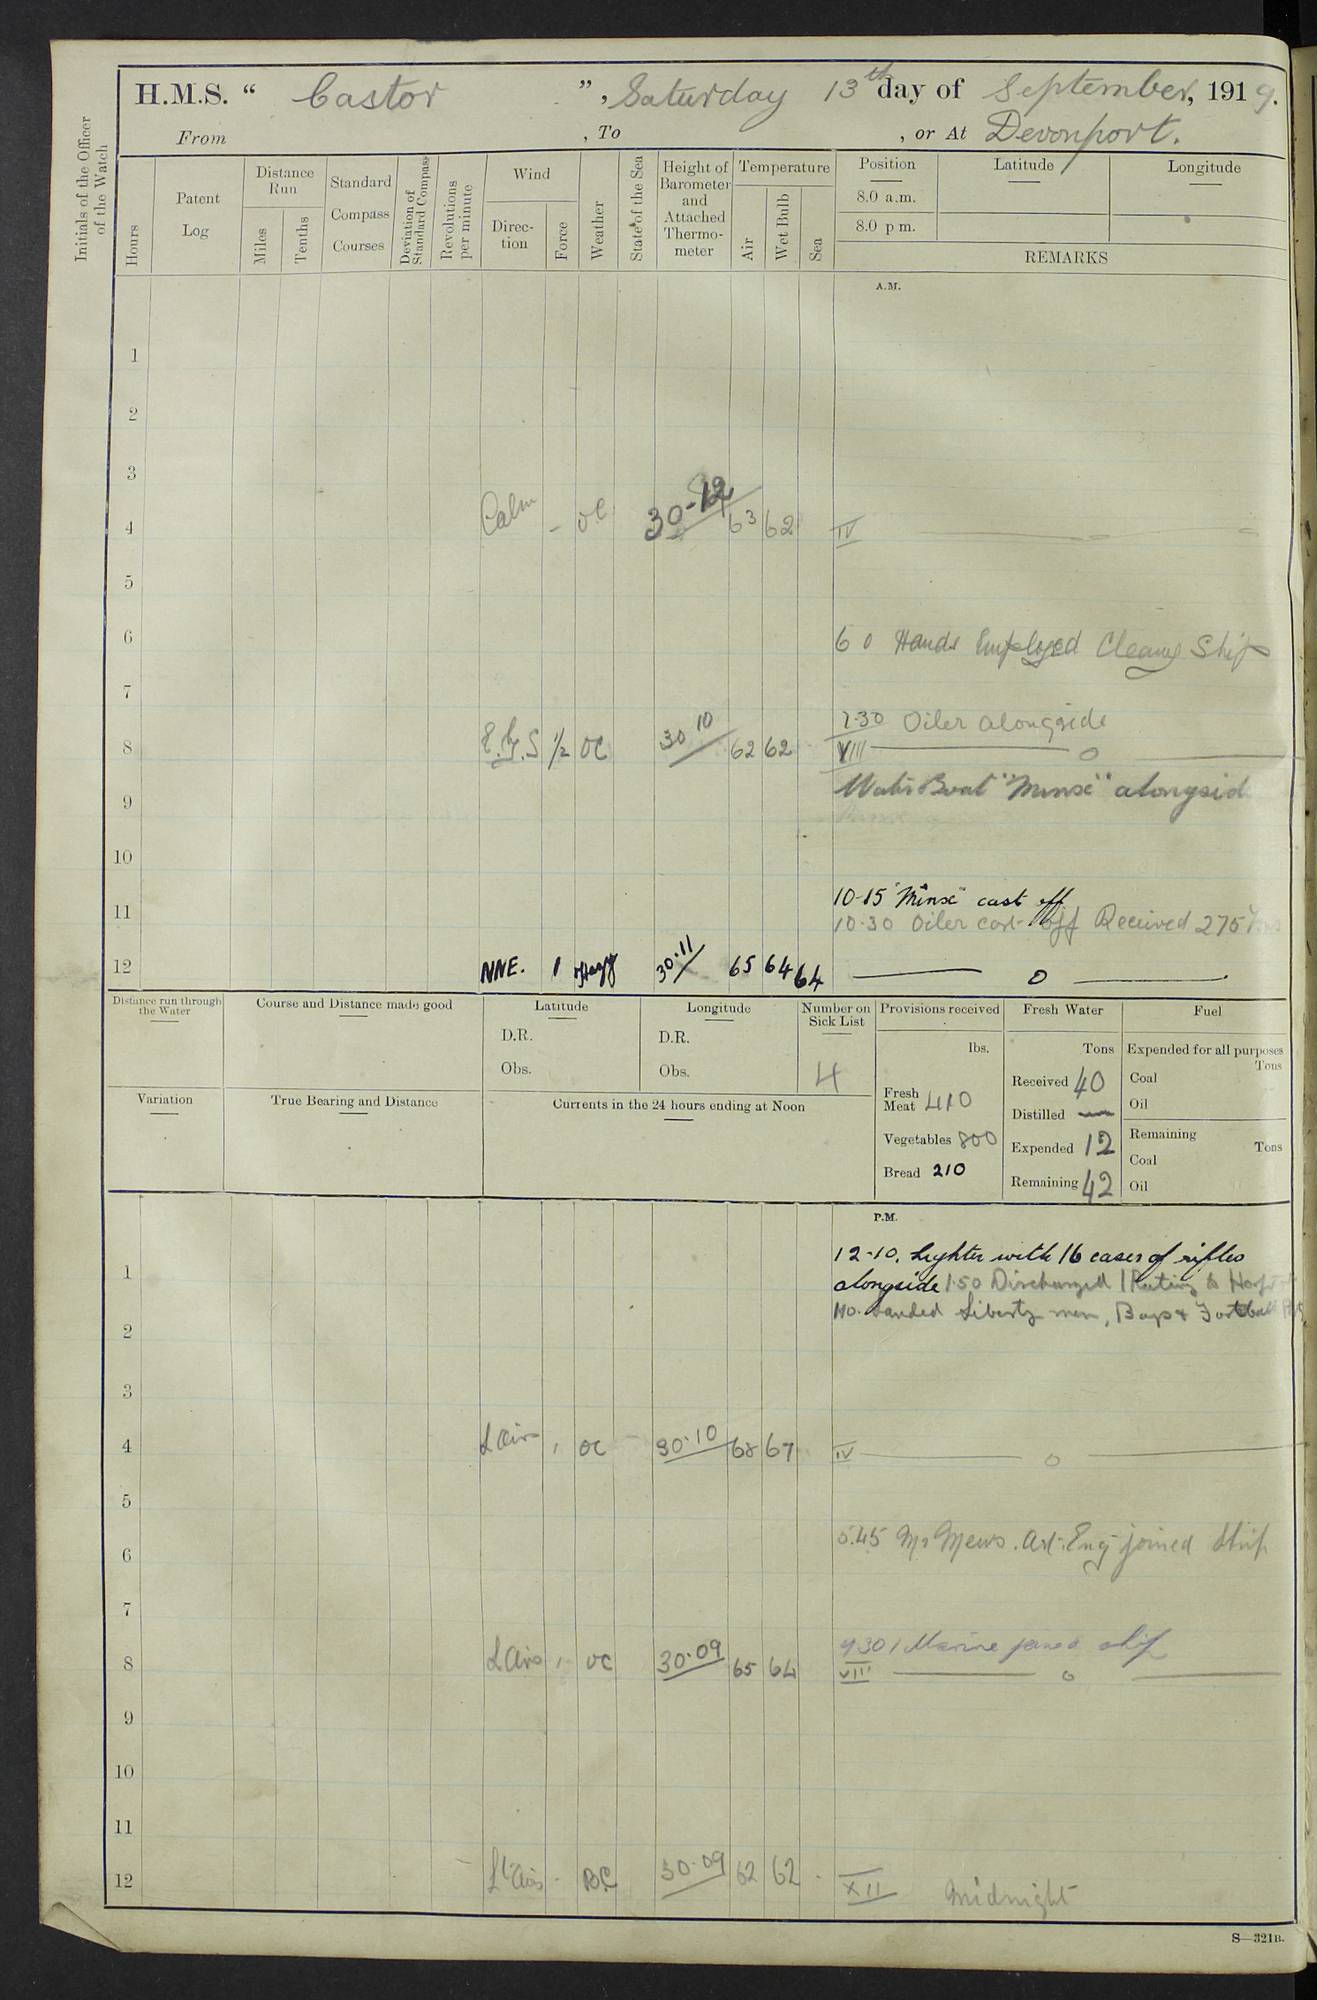 H.M.S. “ Castor ”, Saturday 13th day of September, 1919.
From , To , or At Devonport.
Initials of the Officer
of the Watch
Hours
Patent
Log
Distance
Run
Miles
Tenths
Standard
Compass
Courses
Deviation of
Standard Compass
Revolutions
per minute
Wind
Direc-
tion
Force
Weather
State of the Sea
Height of
Barometer
and
Attached
Thermo-
meter
Temperature
Air
Wet Bulb
Sea
Position
8.0 a.m.
8.0 p m.
Latitude
Longitude
REMARKS
A.M.
1
2
3
4 Calm - oc 30-12 63 62 IV
5
6 6 0 Hands Employed Cleang Ship
7
7.30 Oiler alongside
8 ½ oc 30 10 62 62 VIII
Boat "Minx" alongside
9
10
10-15 "Minx" cast off
11 10.30 Oiler cast off Received 275
12 NNE. 1 30.11 65 64 64 0
Distance run through
the Water
Course and Distance made good
Latitude
D.R.
Obs.
Longitude
D.R.
Obs.
Number on
Sick List
4
Variation
True Bearing and Distance
Currents in the 24 hours ending at Noon
Provisions received
lbs.
Fresh
Meat 410
Vegetables 800
Bread 210
Fresh Water
Tons
Received 40
Distilled —
Expended 12
Remaining 42
Fuel
Expended for all purposes
Tons
Coal
Oil
Remaining
Tons
Coal
Oil
P.M.
12-10. Lighter with 16 cases of rifles
1 alongside 1.50 Discharged 1 Rating to
Landed Liberty men, Boys & Football
2
3
4 L Airs 1 oc 30.10 68 67 IV
5
5.45 Mr Mews. Art. Eng joined Ship
6
7
30 1 Marine joined ship
8 L Airs 1 oc 30.09 65 64 VIII
9
10
11
12 Lt Airs - BC 30.09 62 62 XII Midnight
S—321B.